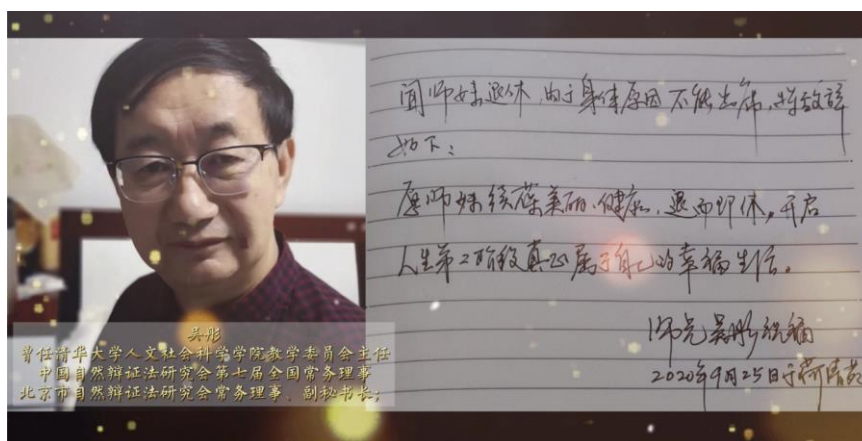 吴彤
曾任清华大学人文社会科学学院教学委员会主任
中国自然辩证法研究会第七届全国常务理事
北京市自然辩证法研究会常务理事、副秘书长;
闻师妹退休,由于身体原因不能出席,特致辞
如下:
愿师妹继续美丽、健康,退而即休,开启
人生第2阶段真正属于自己的幸福生活。
师兄吴彤祝福
2020年9月25日于荷清苑